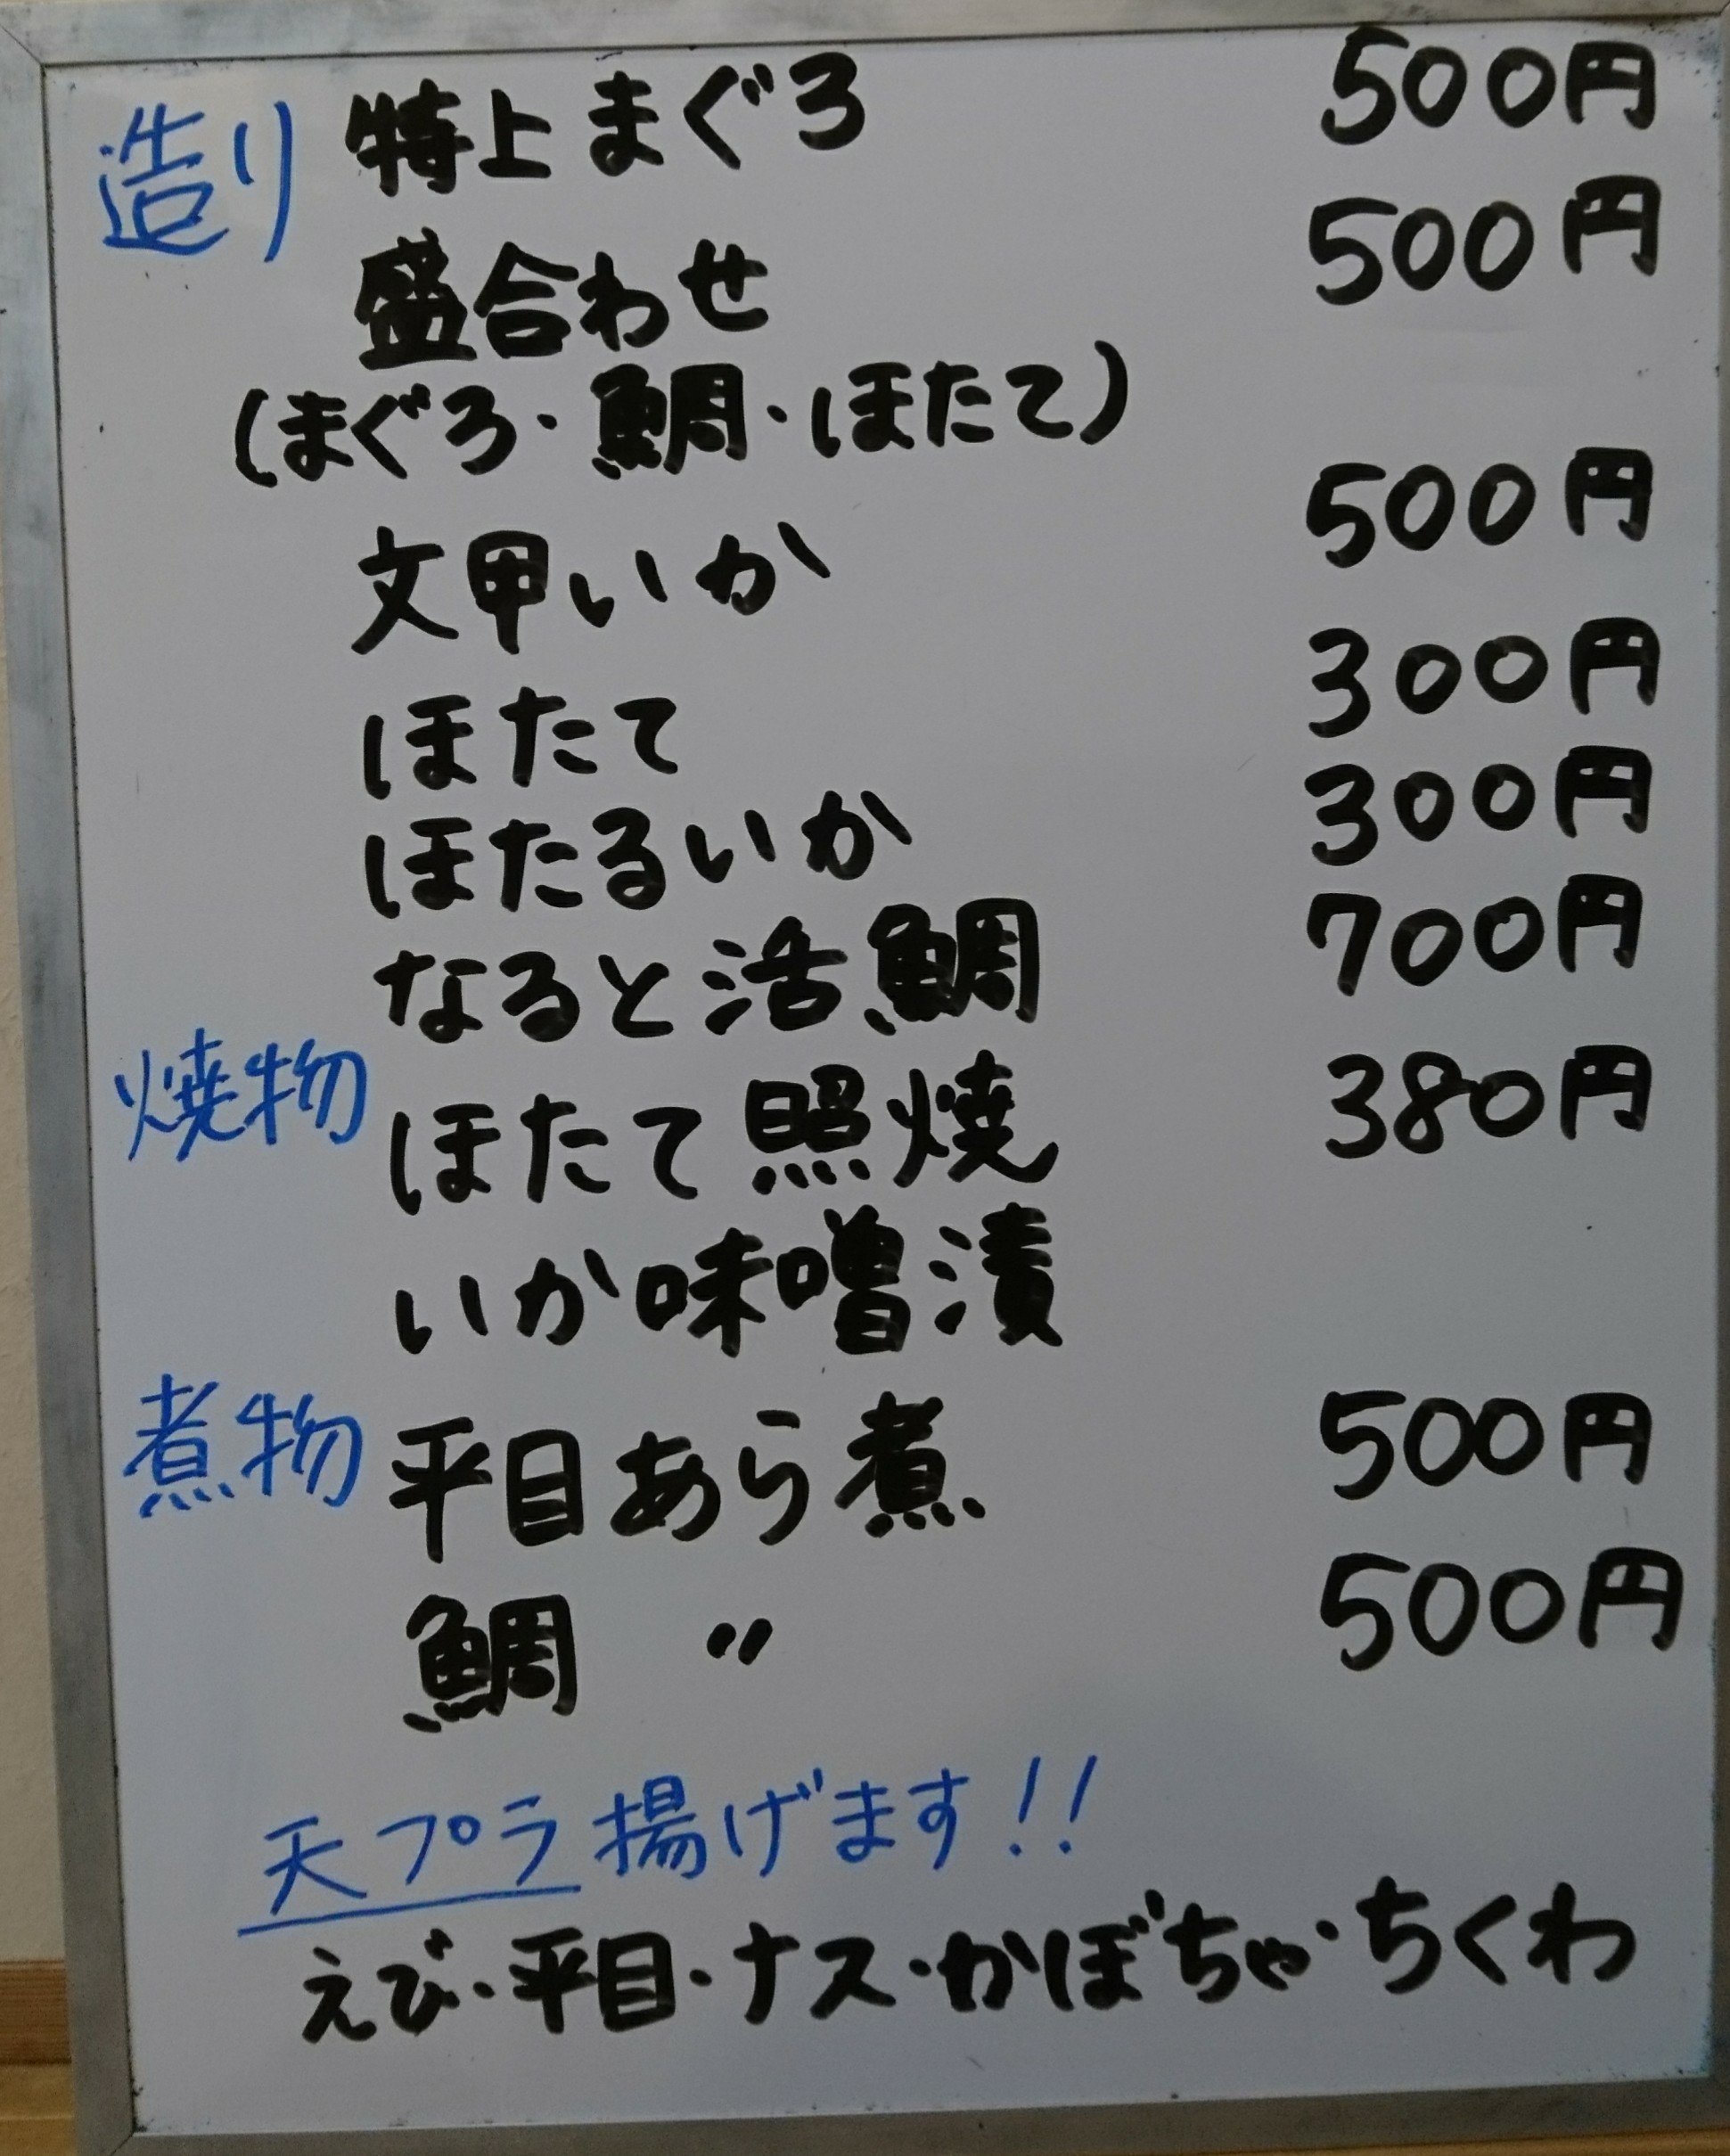 造り 特上まぐろ 500円
盛合わせ 500円
(まぐろ・鯛・ほたて)
文甲いか 500円
ほたて 300円
ほたるいか 300円
なると活鯛 700円
焼物 ほたて照焼 380円
いか味噌漬
煮物 平目あら煮 500円
鯛 〃 500円
天プラ揚げます!!
えび・平目・ナス・かぼちゃ・ちくわ